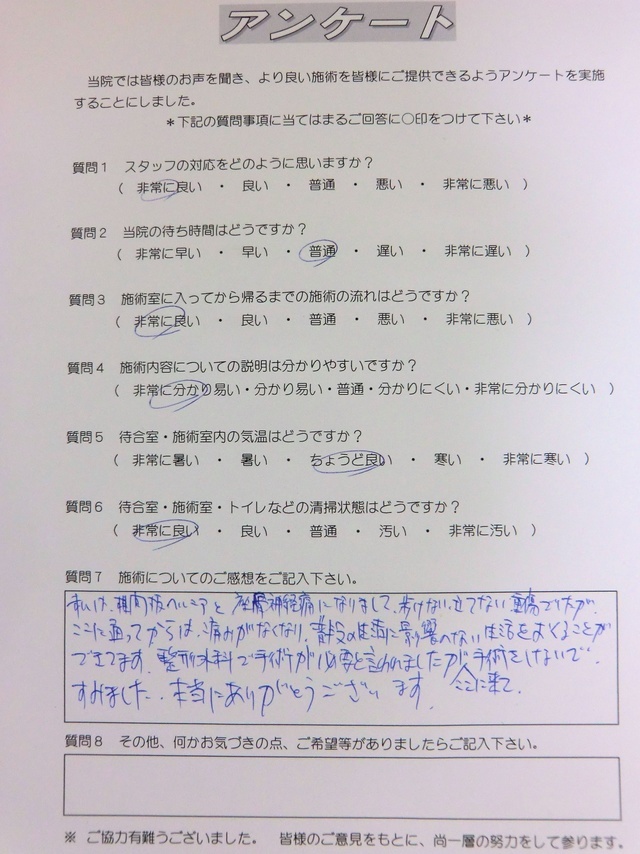 アンケート
当院では皆様のお声を聞き、より良い施術を皆様にご提供できるようアンケートを実施
することにしました。
*下記の質問事項に当てはまるご回答に○印をつけて下さい*
質問1 スタッフの対応をどのように思いますか?
( 非常に良い ・ 良い ・ 普通 ・ 悪い ・ 非常に悪い )
質問2 当院の待ち時間はどうですか?
( 非常に早い ・ 早い ・ 普通 ・ 遅い ・ 非常に遅い )
質問3 施術室に入ってから帰るまでの施術の流れはどうですか?
( 非常に良い ・ 良い ・ 普通 ・ 悪い ・ 非常に悪い )
質問4 施術内容についての説明は分かりやすいですか?
( 非常に分かり易い・分かり易い・普通・分かりにくい・非常に分かりにくい )
質問5 待合室・施術室内の気温はどうですか?
( 非常に暑い ・ 暑い ・ ちょうど良い ・ 寒い ・ 非常に寒い )
質問6 待合室・施術室・トイレなどの清掃状態はどうですか?
( 非常に良い ・ 良い ・ 普通 ・ 汚い ・ 非常に汚い )
質問7 施術についてのご感想をご記入下さい。
私は、椎間板ヘルニアと座骨神経痛になりまして、歩けない、立てない激痛でしたが、
ここに通ってからは、痛みがなくなり、普段の生活に影響へない生活をおくることが
できてます。整形外科で手術が必要と言われましたが、手術をしないで、
すみました。本当にありがとうございます。 ここに来て、
質問8 その他、何かお気づきの点、ご希望等がありましたらご記入下さい。
※ ご協力有難うございました。 皆様のご意見をもとに、尚一層の努力をして参ります。